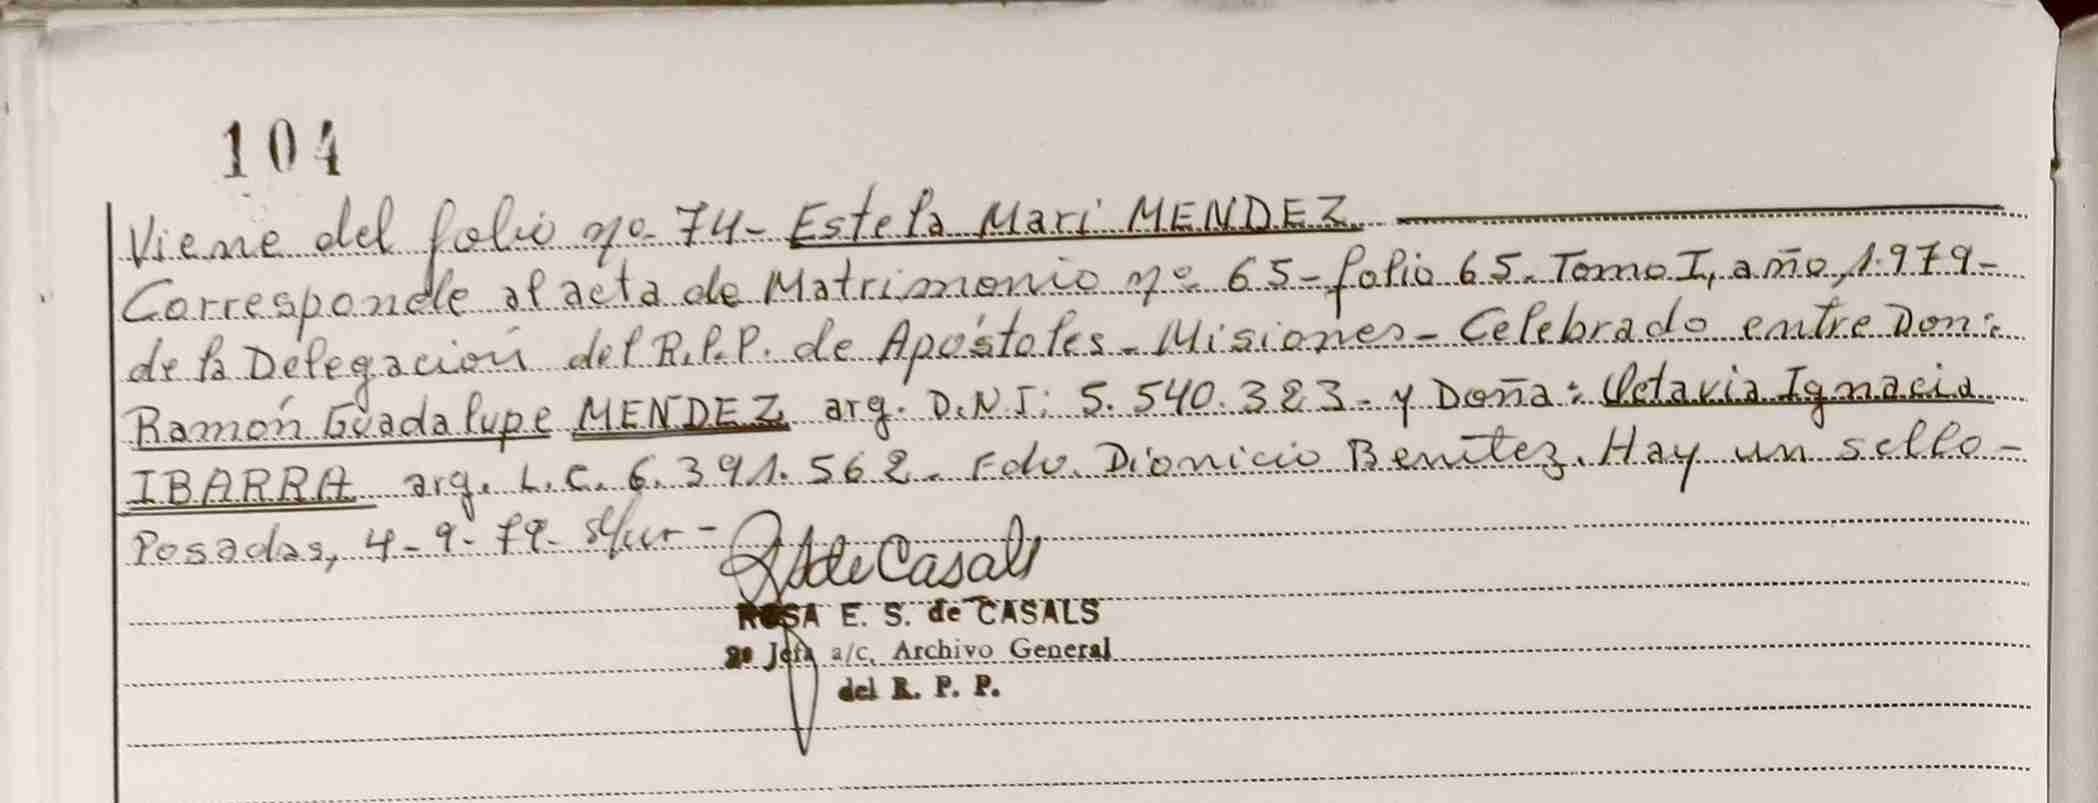 104
Viene del folio nº 74- Estela Mari MENDEZ
Corresponde al acta de Matrimonio nº 65- folio 65. Tomo I, año, 1.979-
de la Delegación del R.P.P. de Apóstoles - Misiones - Celebrado entre Don:
Ramón Guadalupe MENDEZ arg. D.N.I: 5.540.323 - y Doña: Octavia Ignacia
IBARRA arg. L.C. 6.391.562. Fdo. Dionicio Benítez. Hay un sello -
Posadas, 4-9-79-
R S de Casals
ROSA E. S. de CASALS
2º Jefa a/c. Archivo General
del R. P. P.